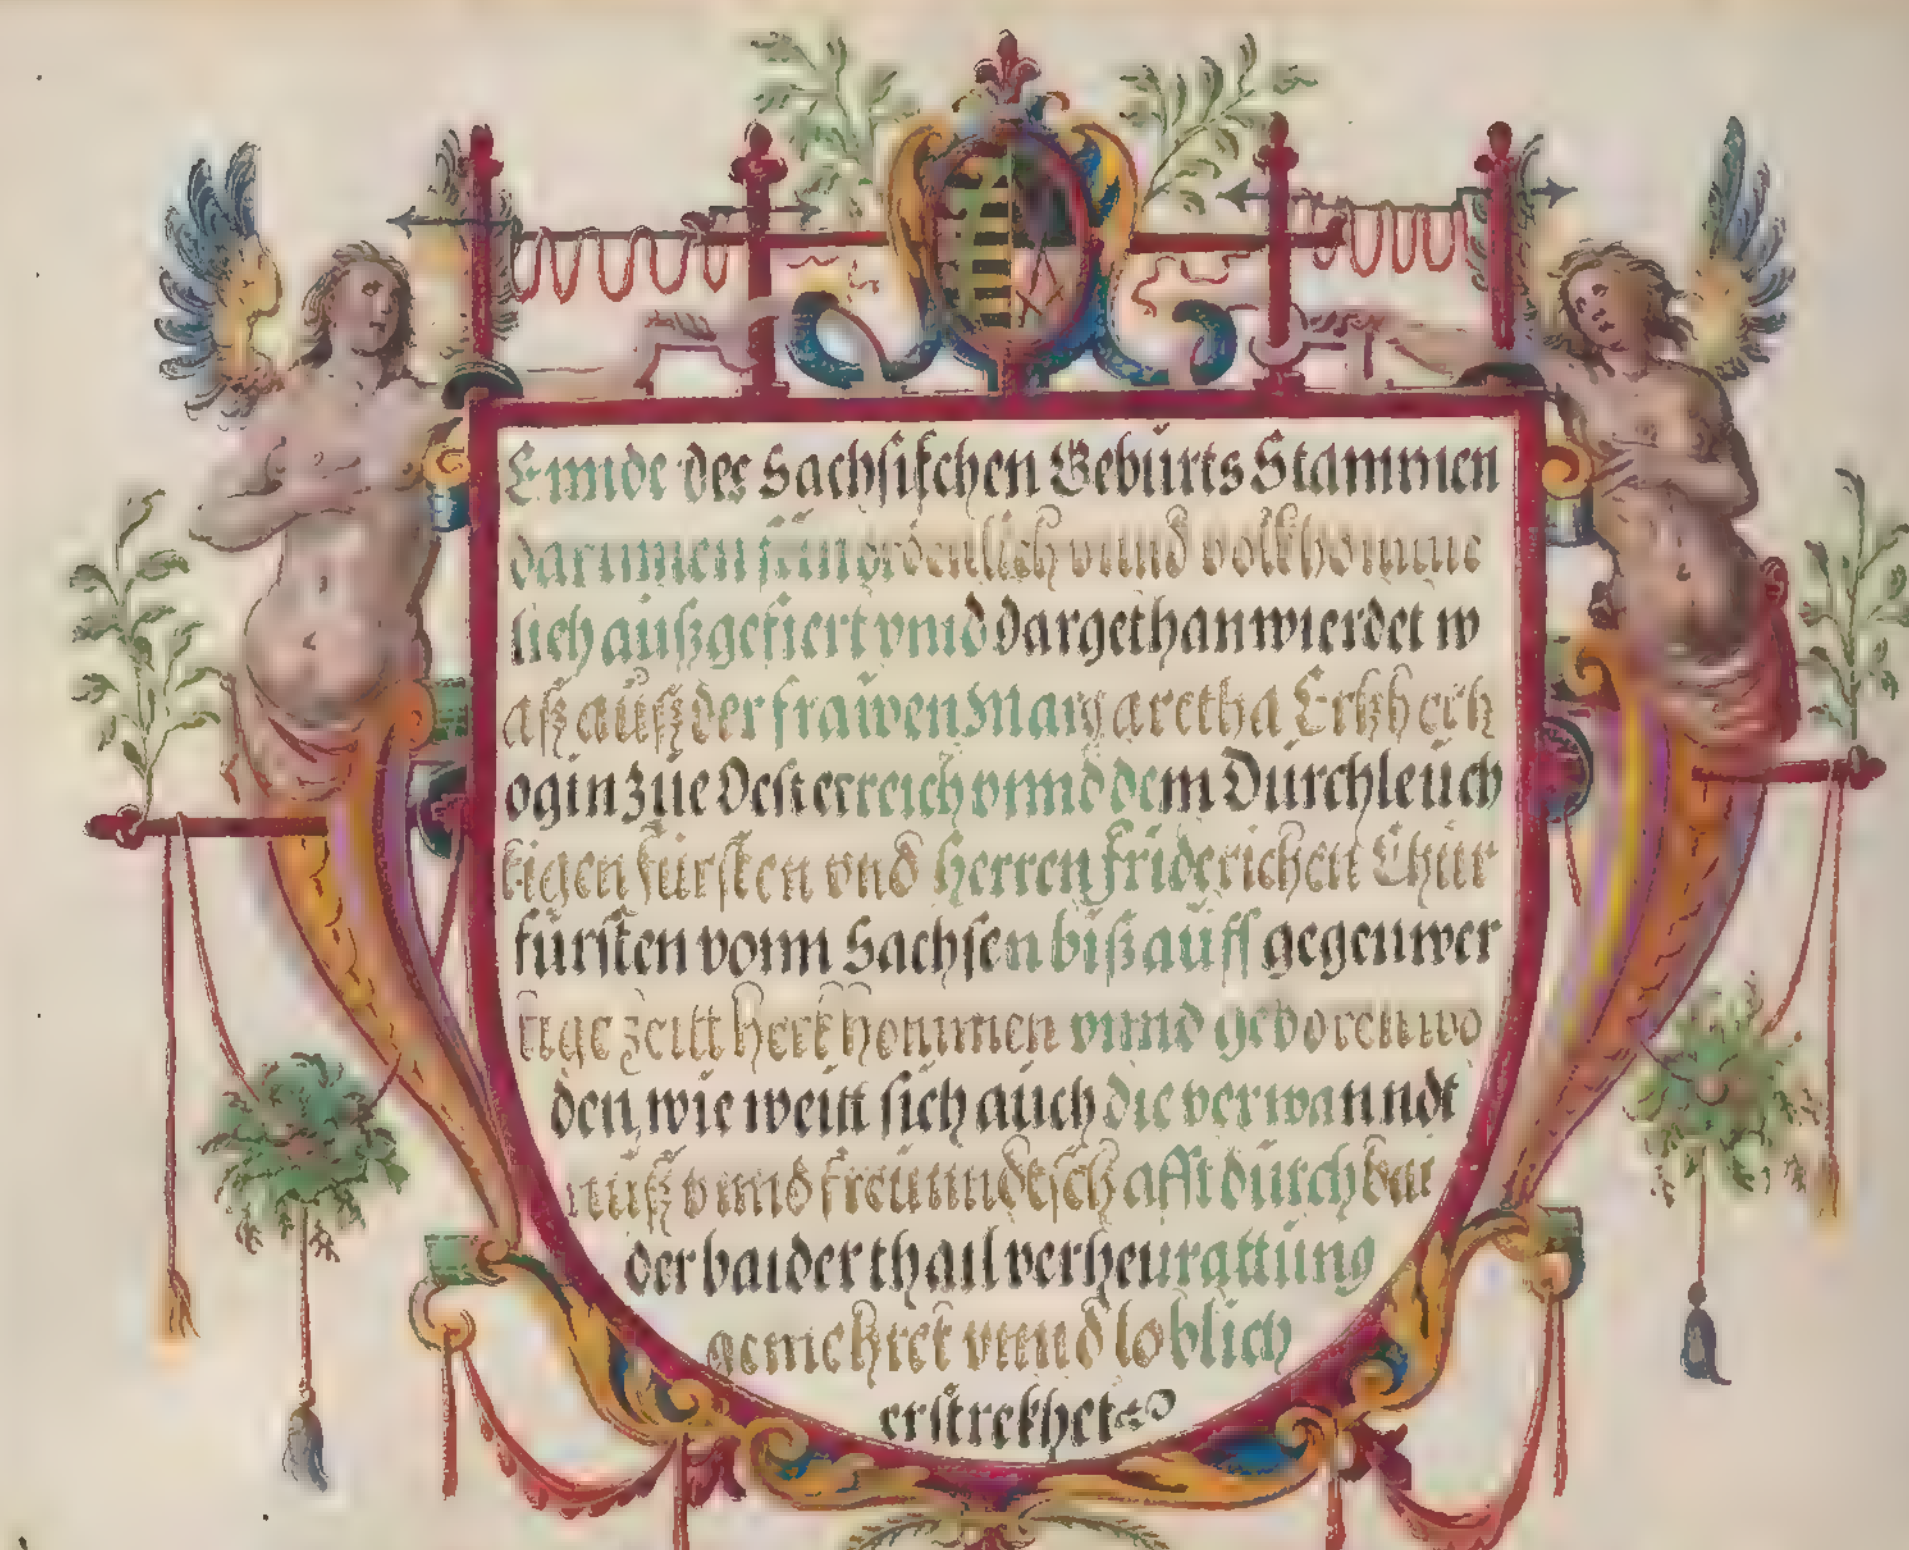 Ennde des Sachsischen Gebürts Stammen
darinnen fein ordenlich vnnd volkhomme
lich außgefiert vnnd dargethan wierdet w
aß auß der frawen Margaretha Ertzhertz
ogin züe Oesterreich vnnd dem Dürchleüch
tigen fürsten vnd Herren Friderichen Chür
fürsten vonn Sachsen biß aüff gegenwer
tige zeitt herkhommen vnnd geboren wo
den, wie weitt sich aüch die verwanndt
nüß vnnd freünndtschafft dürch bai
der baider thail verheürattüng
gemehret vnnd loblich
erstrekhet